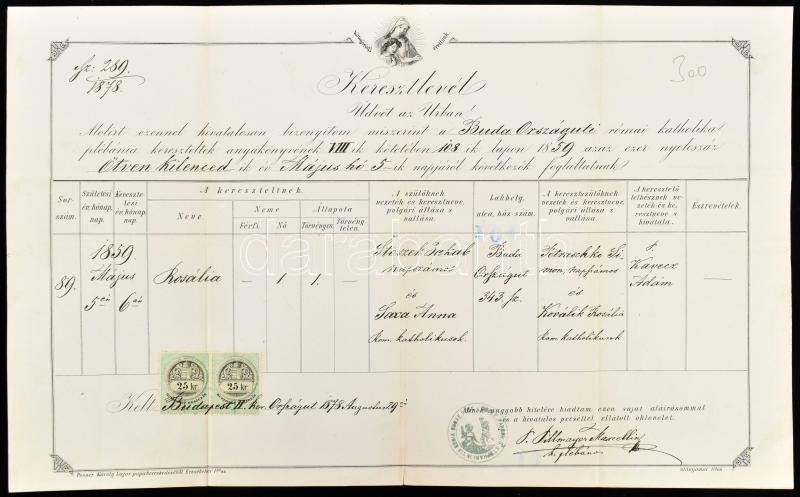 Sz: 289.
1878.
300
Keresztlevél
Üdvöt az Urban!
Alolirt ezennel hivatalosan bizonyitom miszerint a Buda Országuti római katholika
plebánia kereszteltek anyakönyvének VIII ik kötetében 108 ik lapon 1859 azaz ezer nyolcszáz
Ötven kilenced ik év Május hó 5-ik napjáról következők foglaltatnak
Sor-szám.
Születési év, hónap, nap.
Keresztelési év, hónap, nap.
A kereszteltnek.
Neve.
Neme
Férfi.
Nő.
Állapota
Törvényes.
Törvénytelen.
A szülőknek vezeték és keresztneve, polgári állása s vallása.
Lakhely. utca, ház-szám.
A keresztszülőknek vezeték és keresztneve, polgári állása s vallása.
A keresztelő lelkésznek vezeték és keresztneve s hivatala.
Eszrevételek.
89.
1859.
Május
5én
6án
Rosália
—
1.
1.
—
és
Saxa Anna
Rom. katholikusok.
Buda
Országut
343. sz.
és
Kovalik Rosália
Rom. katholikusok
P.
Kavecz
Adám
—
darabanth
25 kr.
25 kr.
Kelt Budapest II. ker. Országut 1878 Augustus 29én
Minek nagyobb hitelére kiadtam ezen saját aláirásommal
és a hivatalos pecséttel ellátott oklevelet.
P. Pillmayer Marcellin
h. plébános
Posner Károly Lajos papirkereskedéséből Erzsébettér 1ső sz.